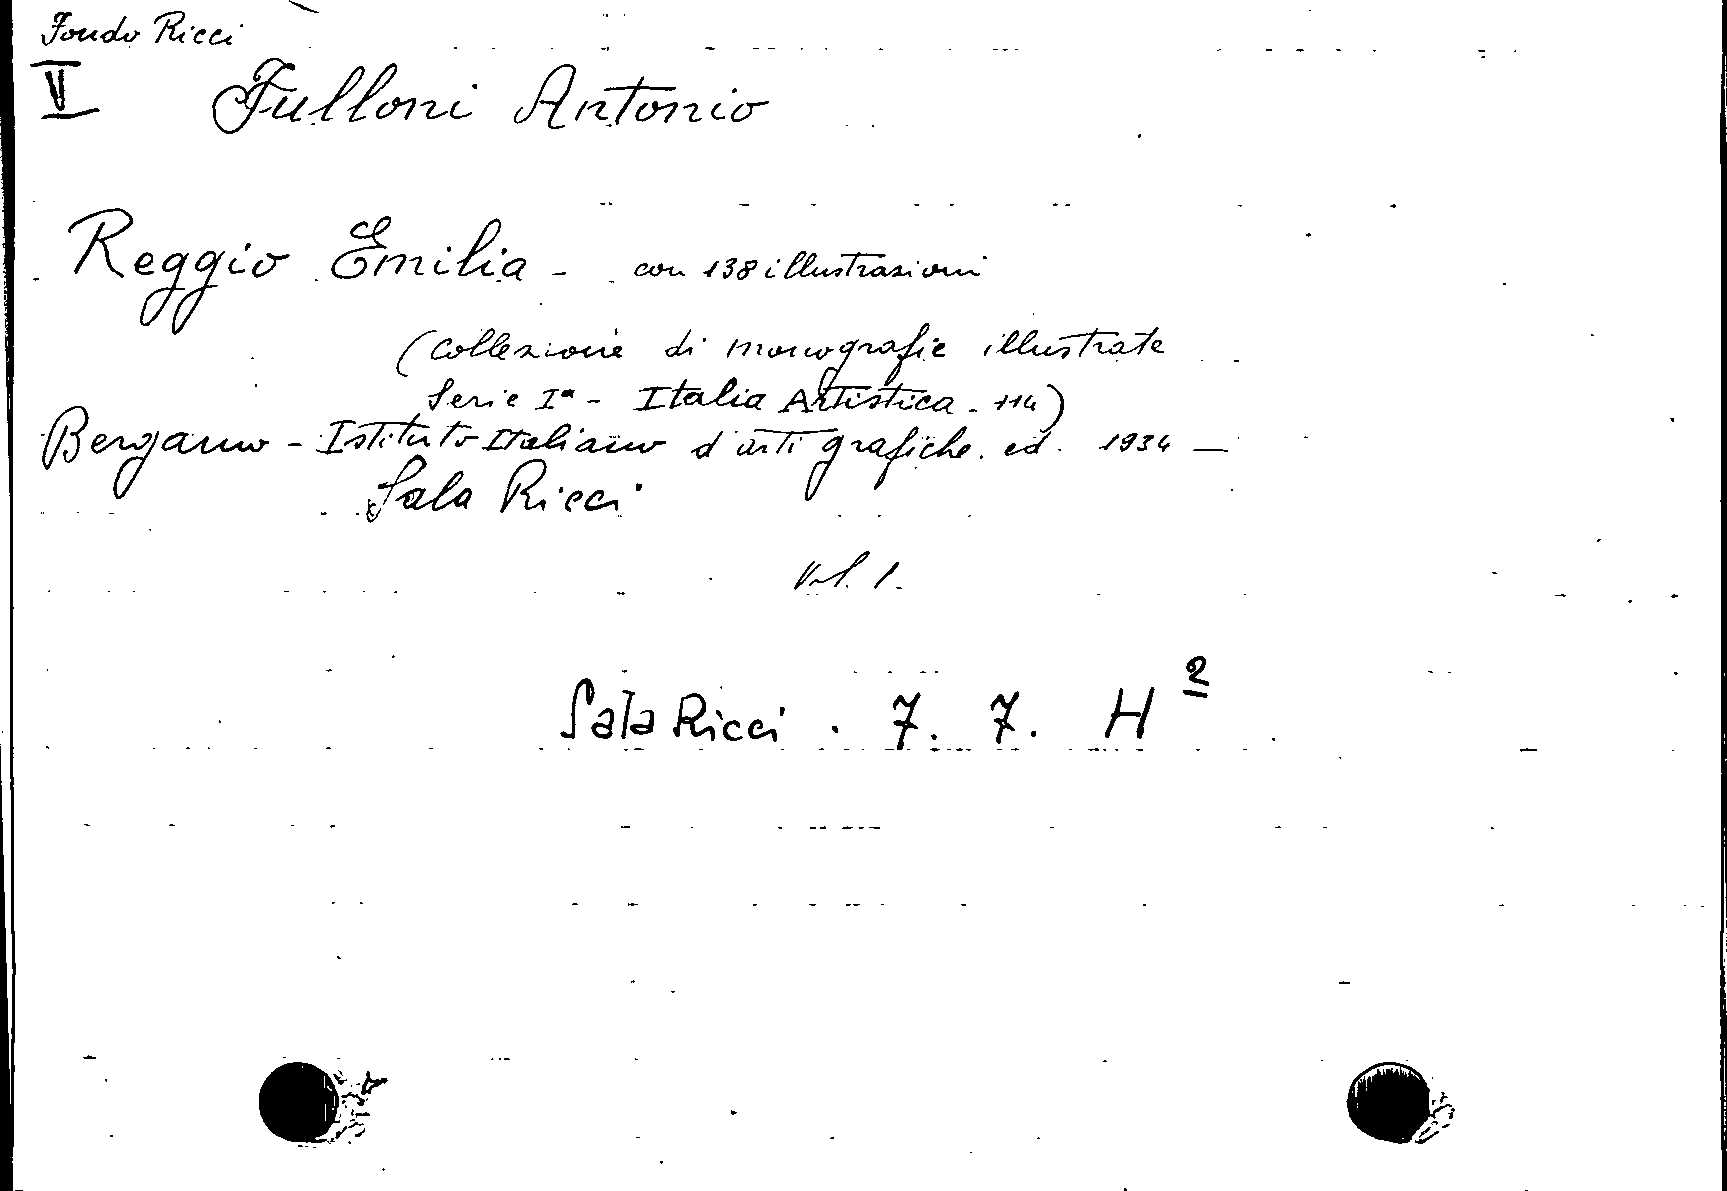 Fondo Ricci
V Fulloni Antonio
Reggio Emilia - con 138 illustrazioni
(Collezione di monografie illustrate
Serie Iª - Italia Artistica - 114)
Bergamo - Istituto Italiano d'arti grafiche. ed. 1934 —
Sala Ricci
Vol. 1.
Sala Ricci . 7. 7. H 2